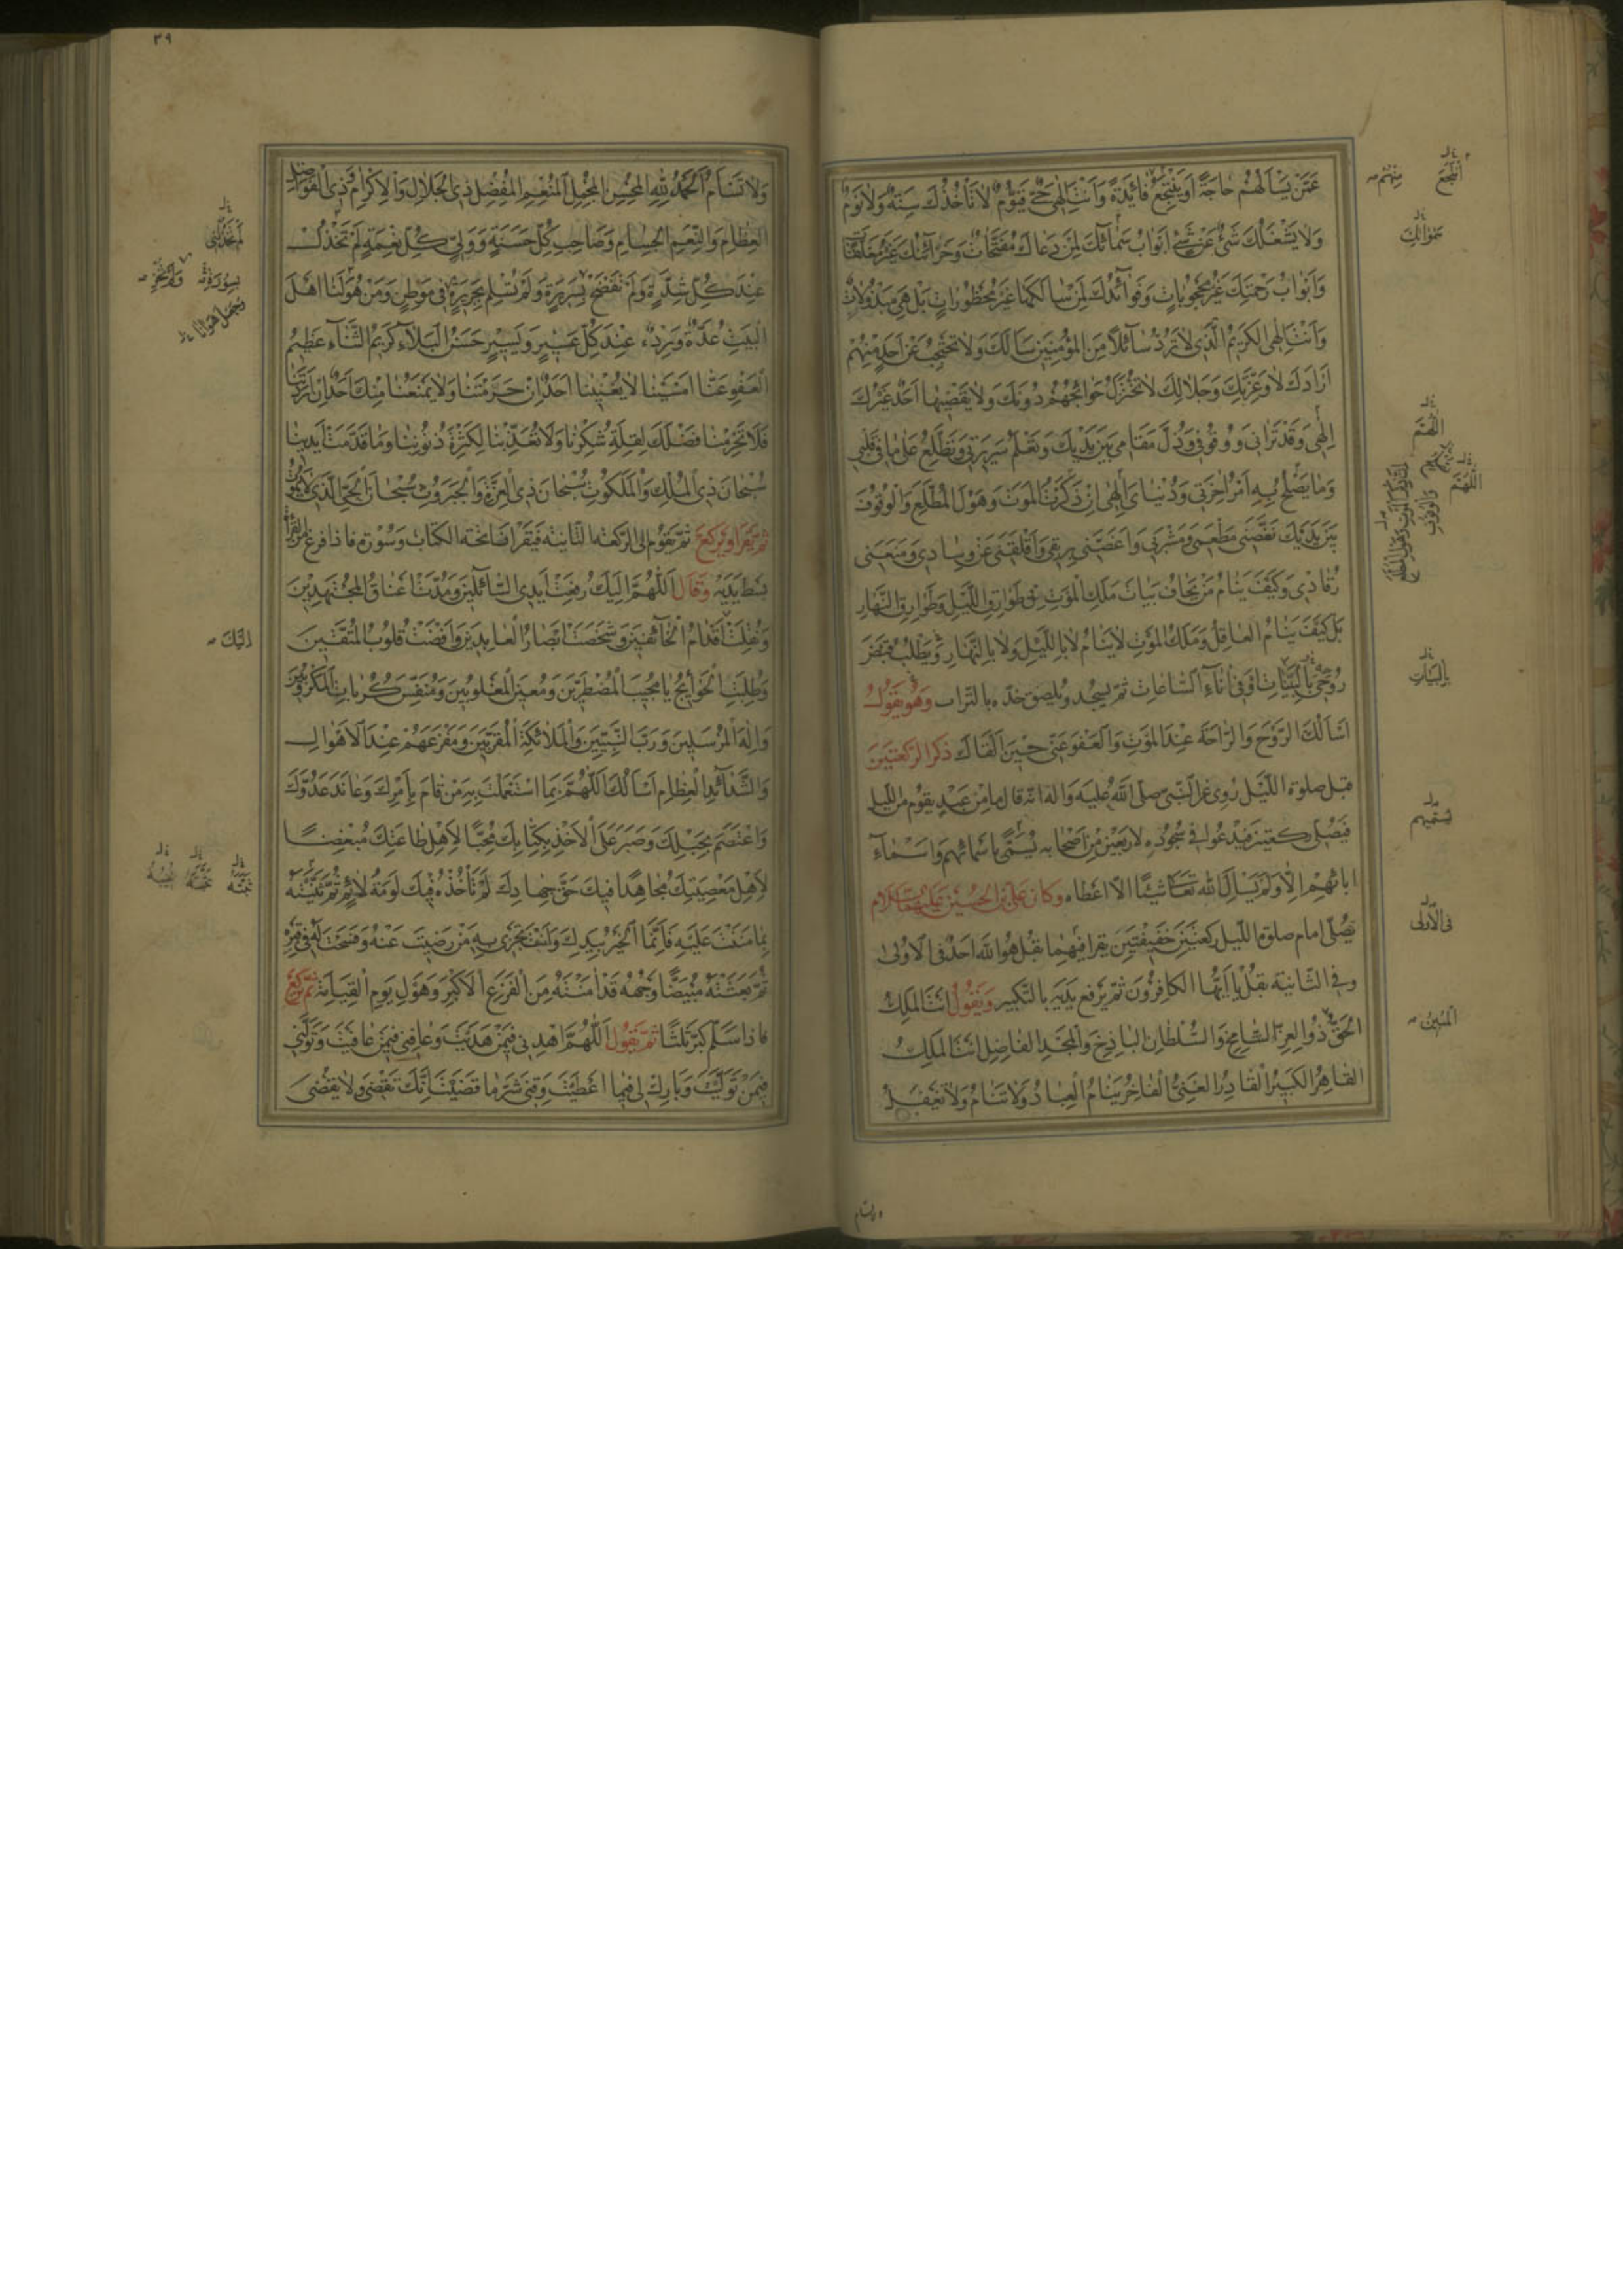 عَمَّنْ يَسْأَلُهُمْ حَاجَةً أَوْ يَنْتَجِعُ فَائِدَةً وَأَنْتَ إِلٰهِي حَيٌّ قَيُّومٌ لَا تَأْخُذُكَ سِنَةٌ وَلَا نَوْمٌ
وَلَا يَشْغَلُكَ شَيْءٌ عَنْ شَيْءٍ أَبْوَابُ سَمَائِكَ لِمَنْ دَعَاكَ مُفَتَّحَاتٌ وَخَزَائِنُكَ غَيْرُ مُغَلَّقَاتٍ
وَأَبْوَابُ رَحْمَتِكَ غَيْرُ مَحْجُوبَاتٍ وَفَوَائِدُكَ لِمَنْ سَأَلَكَهَا غَيْرُ مَحْظُورَاتٍ بَلْ هِيَ مَبْذُولَاتٌ
وَأَنْتَ إِلٰهِي الْكَرِيمُ الَّذِي لَا تَرُدُّ سَائِلًا مِنَ الْمُؤْمِنِينَ سَأَلَكَ وَلَا تَحْتَجِبُ عَنْ أَحَدٍ مِنْهُمْ
أَرَادَكَ لَا وَعِزَّتِكَ وَجَلَالِكَ لَا تُخْتَزَلُ حَوَائِجُهُمْ دُونَكَ وَلَا يَقْضِيهَا أَحَدٌ غَيْرُكَ
إِلٰهِي وَقَدْ تَرَانِي وَوُقُوفِي وَذُلَّ مَقَامِي بَيْنَ يَدَيْكَ وَتَعْلَمُ سَرِيرَتِي وَتَطَّلِعُ عَلَى مَا فِي قَلْبِي
وَمَا يَصْلُحُ بِهِ أَمْرُ آخِرَتِي وَدُنْيَايَ إِلٰهِي إِنْ ذَكَرْتُ الْمَوْتَ وَهَوْلَ الْمُطَّلَعِ وَالْوُقُوفَ
بَيْنَ يَدَيْكَ نَغَّصَنِي مَطْعَمِي وَمَشْرَبِي وَأَغَصَّنِي بِرِيقِي وَأَقْلَقَنِي عَنْ وِسَادِي وَمَنَعَنِي
رُقَادِي وَكَيْفَ يَنَامُ مَنْ يَخَافُ بَيَاتَ مَلَكِ الْمَوْتِ فِي طَوَارِقِ اللَّيْلِ وَطَوَارِقِ النَّهَارِ
بَلْ كَيْفَ يَنَامُ الْعَاقِلُ وَمَلَكُ الْمَوْتِ لَا يَنَامُ لَا بِاللَّيْلِ وَلَا بِالنَّهَارِ وَيَطْلُبُ قَبْضَ
رُوحِي بِالْبَيَاتِ أَوْ فِي آنَاءِ السَّاعَاتِ ثُمَّ يَسْجُدُ وَيُلْصِقُ خَدَّهُ بِالتُّرَابِ وَهُوَ يَقُولُ
أَسْأَلُكَ الرَّوْحَ وَالرَّاحَةَ عِنْدَ الْمَوْتِ وَالْعَفْوَ عَنِّي حِينَ أَلْقَاكَ ذكر الركعتين
قبل صلوة اللّيل روي عن النبي صلّى الله عليه واله انه قال ما من عبد يقوم من الليل
فيصلي ركعتين فيدعوا في سجوده لاربعين من اصحابه يسمّي باسمائهم واسماء
ابائهم الّا ولم يسأل الله تعالى شيئا الّا اعطاه وكان علي بن الحسين عليهما السلام
يصلي امام صلوة الليل ركعتين خفيفتين يقرا فيهما بقل هو الله احد في الاولى
وفي الثانية بقل يا أيها الكافرون ثم يرفع يديه بالتكبير ويقول أنت الملك
الحق ذو العز الشامخ والسلطان الباذخ والمجد الفاضل أنت الملك
القاهر الكبير القادر الغني الفاخر ينام العباد ولا تنام ولا تغفل
سمواتك
اللهم
بالبيات
يسميهم
في الاولى
المبين
٣٩
وَلَا تَسْأَمُ الْحَمْدُ لِلّٰهِ الْمُحْسِنِ الْمُجْمِلِ الْمُنْعِمِ الْمُفْضِلِ ذِي الْجَلَالِ وَالْإِكْرَامِ وَذِي الْفَوَاضِلِ
الْعِظَامِ وَالنِّعَمِ الْجِسَامِ وَصَاحِبِ كُلِّ حَسَنَةٍ وَوَلِيِّ كُلِّ نِعْمَةٍ لَمْ تَخْذُلْ
عِنْدَ كُلِّ شِدَّةٍ وَلَمْ تَفْضَحْ بِسَرِيرَةٍ وَلَمْ تُسْلِمْ بِجَرِيرَةٍ فِي مَوْطِنٍ وَمَنْ هُوَ لَنَا أَهْلَ
الْبَيْتِ عُدَّةٌ وَرِدْءٌ عِنْدَ كُلِّ عَسِيرٍ وَيَسِيرٍ حَسَنُ الْبَلَاءِ كَرِيمُ الثَّنَاءِ عَظِيمُ
الْعَفْوِ عَنَّا أَمْسَيْنَا لَا يُغْنِينَا أَحَدٌ إِنْ حَرَمْتَنَا وَلَا يَمْنَعُنَا مِنْكَ أَحَدٌ إِنْ أَرَدْتَنَا
فَلَا تَحْرِمْنَا فَضْلَكَ لِقِلَّةِ شُكْرِنَا وَلَا تُعَذِّبْنَا لِكَثْرَةِ ذُنُوبِنَا وَمَا قَدَّمَتْ أَيْدِينَا
سُبْحَانَ ذِي الْمُلْكِ وَالْمَلَكُوتِ سُبْحَانَ ذِي الْعِزَّةِ وَالْجَبَرُوتِ سُبْحَانَ الْحَيِّ الَّذِي لَا يَمُوتُ
ثم يقرا ويركع ثم يقوم الى الركعة الثانية فيقرا فاتحة الكتاب وسورة فاذا فرغ من القراءة
بسط يديه وقال اَللّٰهُمَّ إِلَيْكَ رُفِعَتْ أَيْدِي السَّائِلِينَ وَمُدَّتْ أَعْنَاقُ الْمُجْتَهِدِينَ
وَنُقِلَتْ أَقْدَامُ الْخَائِفِينَ وَشَخَصَتْ أَبْصَارُ الْعَابِدِينَ وَأَفْضَتْ قُلُوبُ الْمُتَّقِينَ
وَطُلِبَتِ الْحَوَائِجُ يَا مُجِيبَ الْمُضْطَرِّينَ وَمُعِينَ الْمَغْلُوبِينَ وَمُنَفِّسَ كُرُبَاتِ الْمَكْرُوبِينَ
وَإِلٰهَ الْمُرْسَلِينَ وَرَبَّ النَّبِيِّينَ وَالْمَلَائِكَةِ الْمُقَرَّبِينَ وَمَفْزَعَهُمْ عِنْدَ الْأَهْوَالِ
وَالشَّدَائِدِ الْعِظَامِ أَسْأَلُكَ اللّٰهُمَّ بِمَا اسْتَعْمَلْتَ بِهِ مَنْ قَامَ بِأَمْرِكَ وَعَانَدَ عَدُوَّكَ
وَاعْتَصَمَ بِحَبْلِكَ وَصَبَرَ عَلَى الْأَخْذِ بِكِتَابِكَ مُحِبًّا لِأَهْلِ طَاعَتِكَ مُبْغِضًا
لِأَهْلِ مَعْصِيَتِكَ مُجَاهِدًا فِيكَ حَقَّ جِهَادِكَ لَمْ تَأْخُذْهُ فِيكَ لَوْمَةُ لَائِمٍ ثُمَّ ثَبَّتَّهُ
بِمَا مَنَنْتَ عَلَيْهِ فَإِنَّمَا الْخَيْرُ بِيَدِكَ وَأَنْتَ تَجْزِي بِهِ مَنْ رَضِيتَ عَنْهُ وَفَسَحْتَ لَهُ فِي قَبْرِهِ
ثُمَّ بَعَثْتَهُ مُبْيَضًّا وَجْهُهُ قَدْ أَمَّنْتَهُ مِنَ الْفَزَعِ الْأَكْبَرِ وَهَوْلِ يَوْمِ الْقِيَامَةِ ثم يركع
فاذا سلّم كبّر ثلثا ثم يقول اَللّٰهُمَّ اهْدِنِي فِيمَنْ هَدَيْتَ وَعَافِنِي فِيمَنْ عَافَيْتَ وَتَوَلَّنِي
فِيمَنْ تَوَلَّيْتَ وَبَارِكْ لِي فِيمَا أَعْطَيْتَ وَقِنِي شَرَّ مَا قَضَيْتَ إِنَّكَ تَقْضِي وَلَا يُقْضَى
اليك